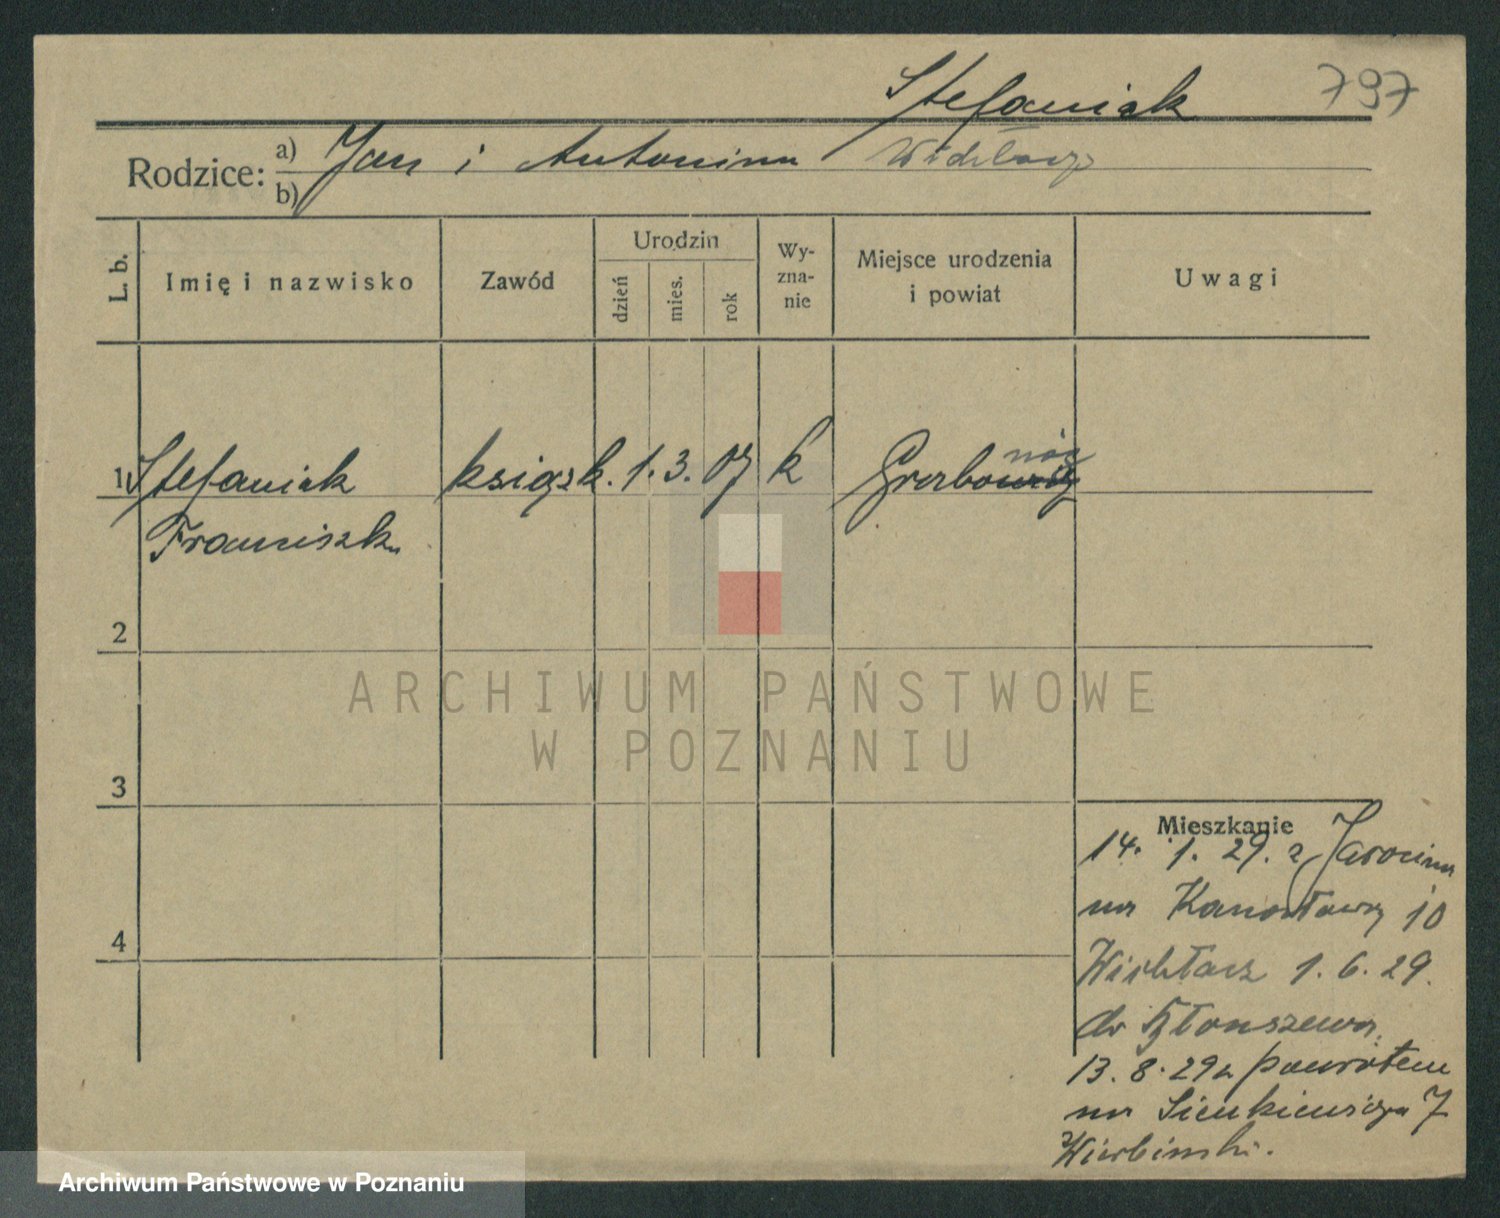 Stefaniak 797
Rodzice: a) Jan i Antonina
b)
L. b.
Imię i nazwisko
Zawód
Urodzin
dzień
mies.
rok
Wy-
zna-
nie
Miejsce urodzenia
i powiat
Uwagi
1 Stefaniak książk. 1. 3. 07 k
Franciszka
2
3
4
ARCHIWUM PAŃSTWOWE
W POZNANIU
Mieszkanie
14. 1. 29. z Jarocina
na 10
1. 6. 29.
do
13. 8. 29 z powrotem
na Sienkiewicza 7
Archiwum Państwowe w Poznaniu